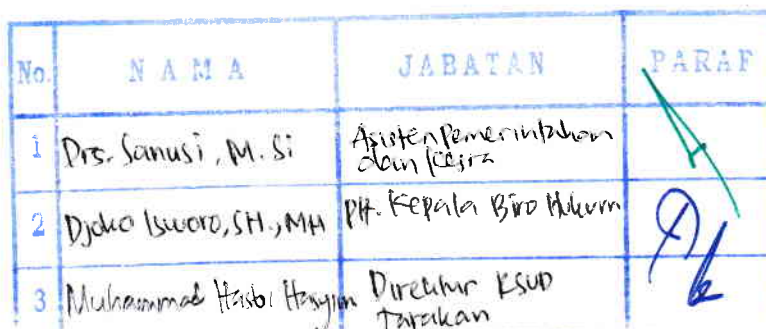 No. N A M A JABATAN PARAF
1 Drs. Sanusi, M. Si Asisten Pemerintahan
dan Kesra
2 Djoko Isworo, SH., MH Plt. Kepala Biro Hukum
3 Muhammad Hasbi Hasyim Direktur RSUD
Tarakan